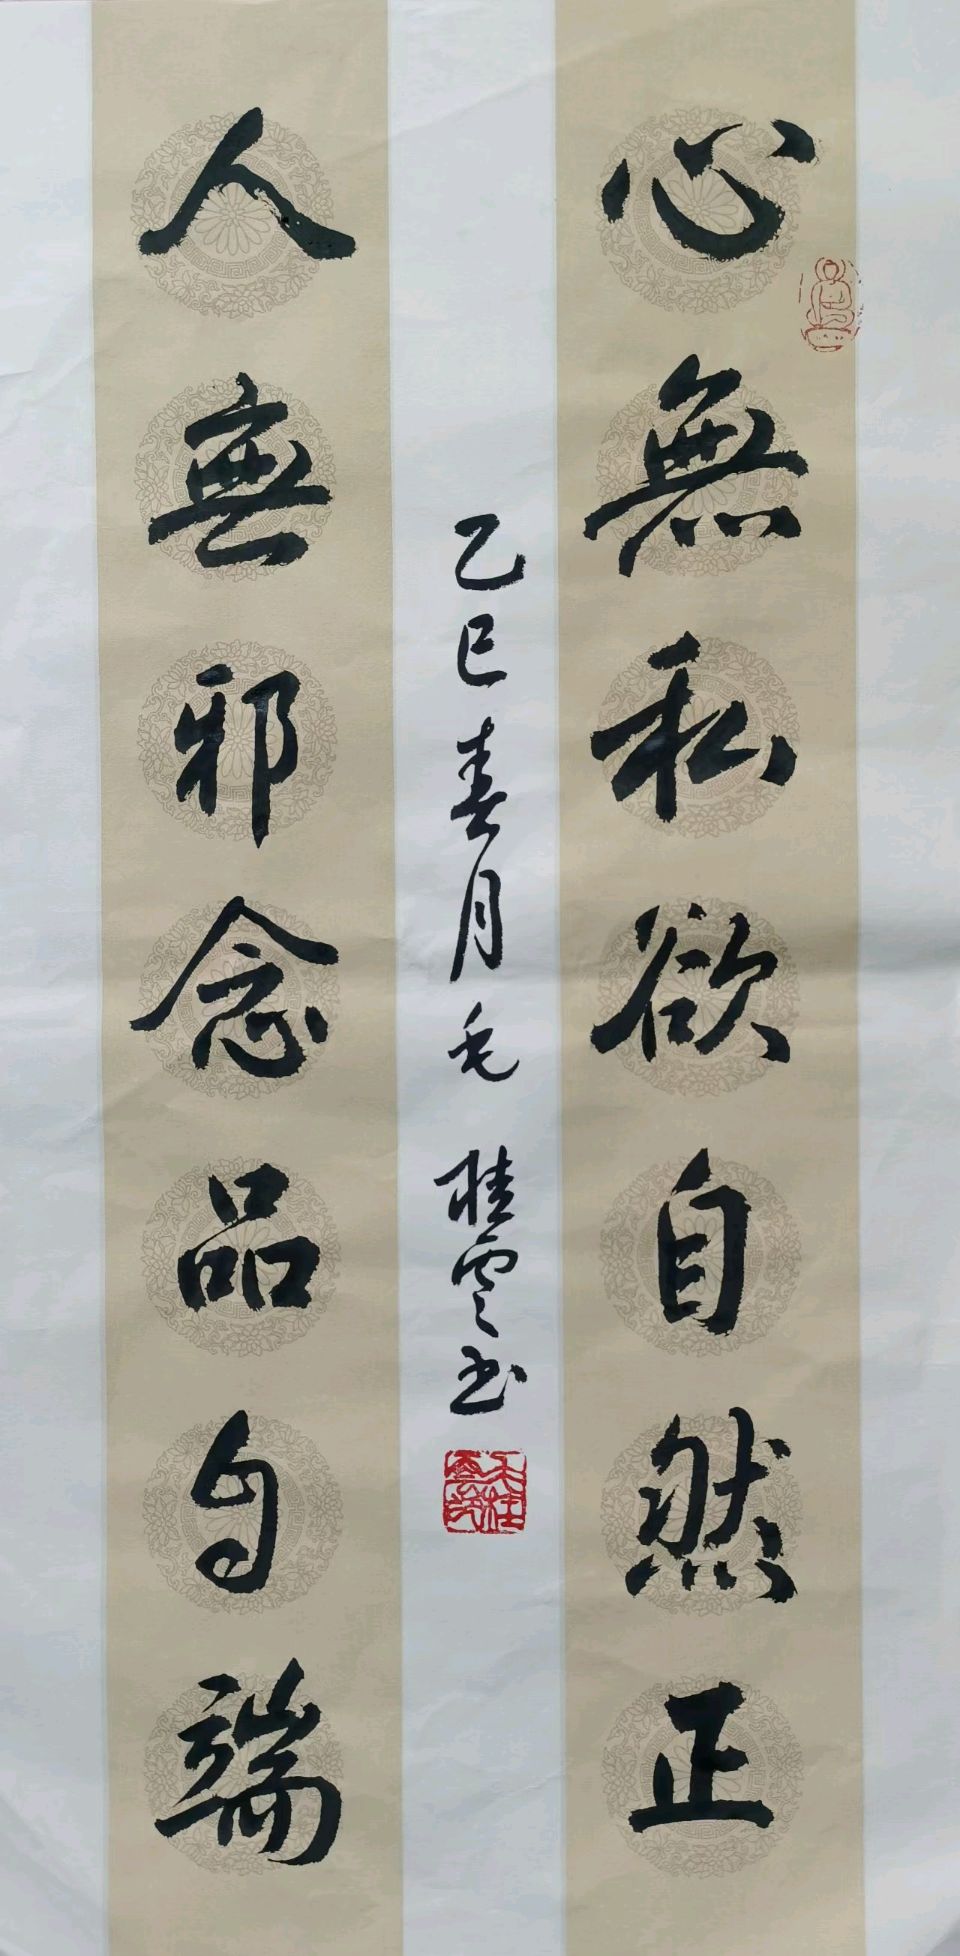 心無私欲自然正
人無邪念品自端
乙巳春月毛桂雲书